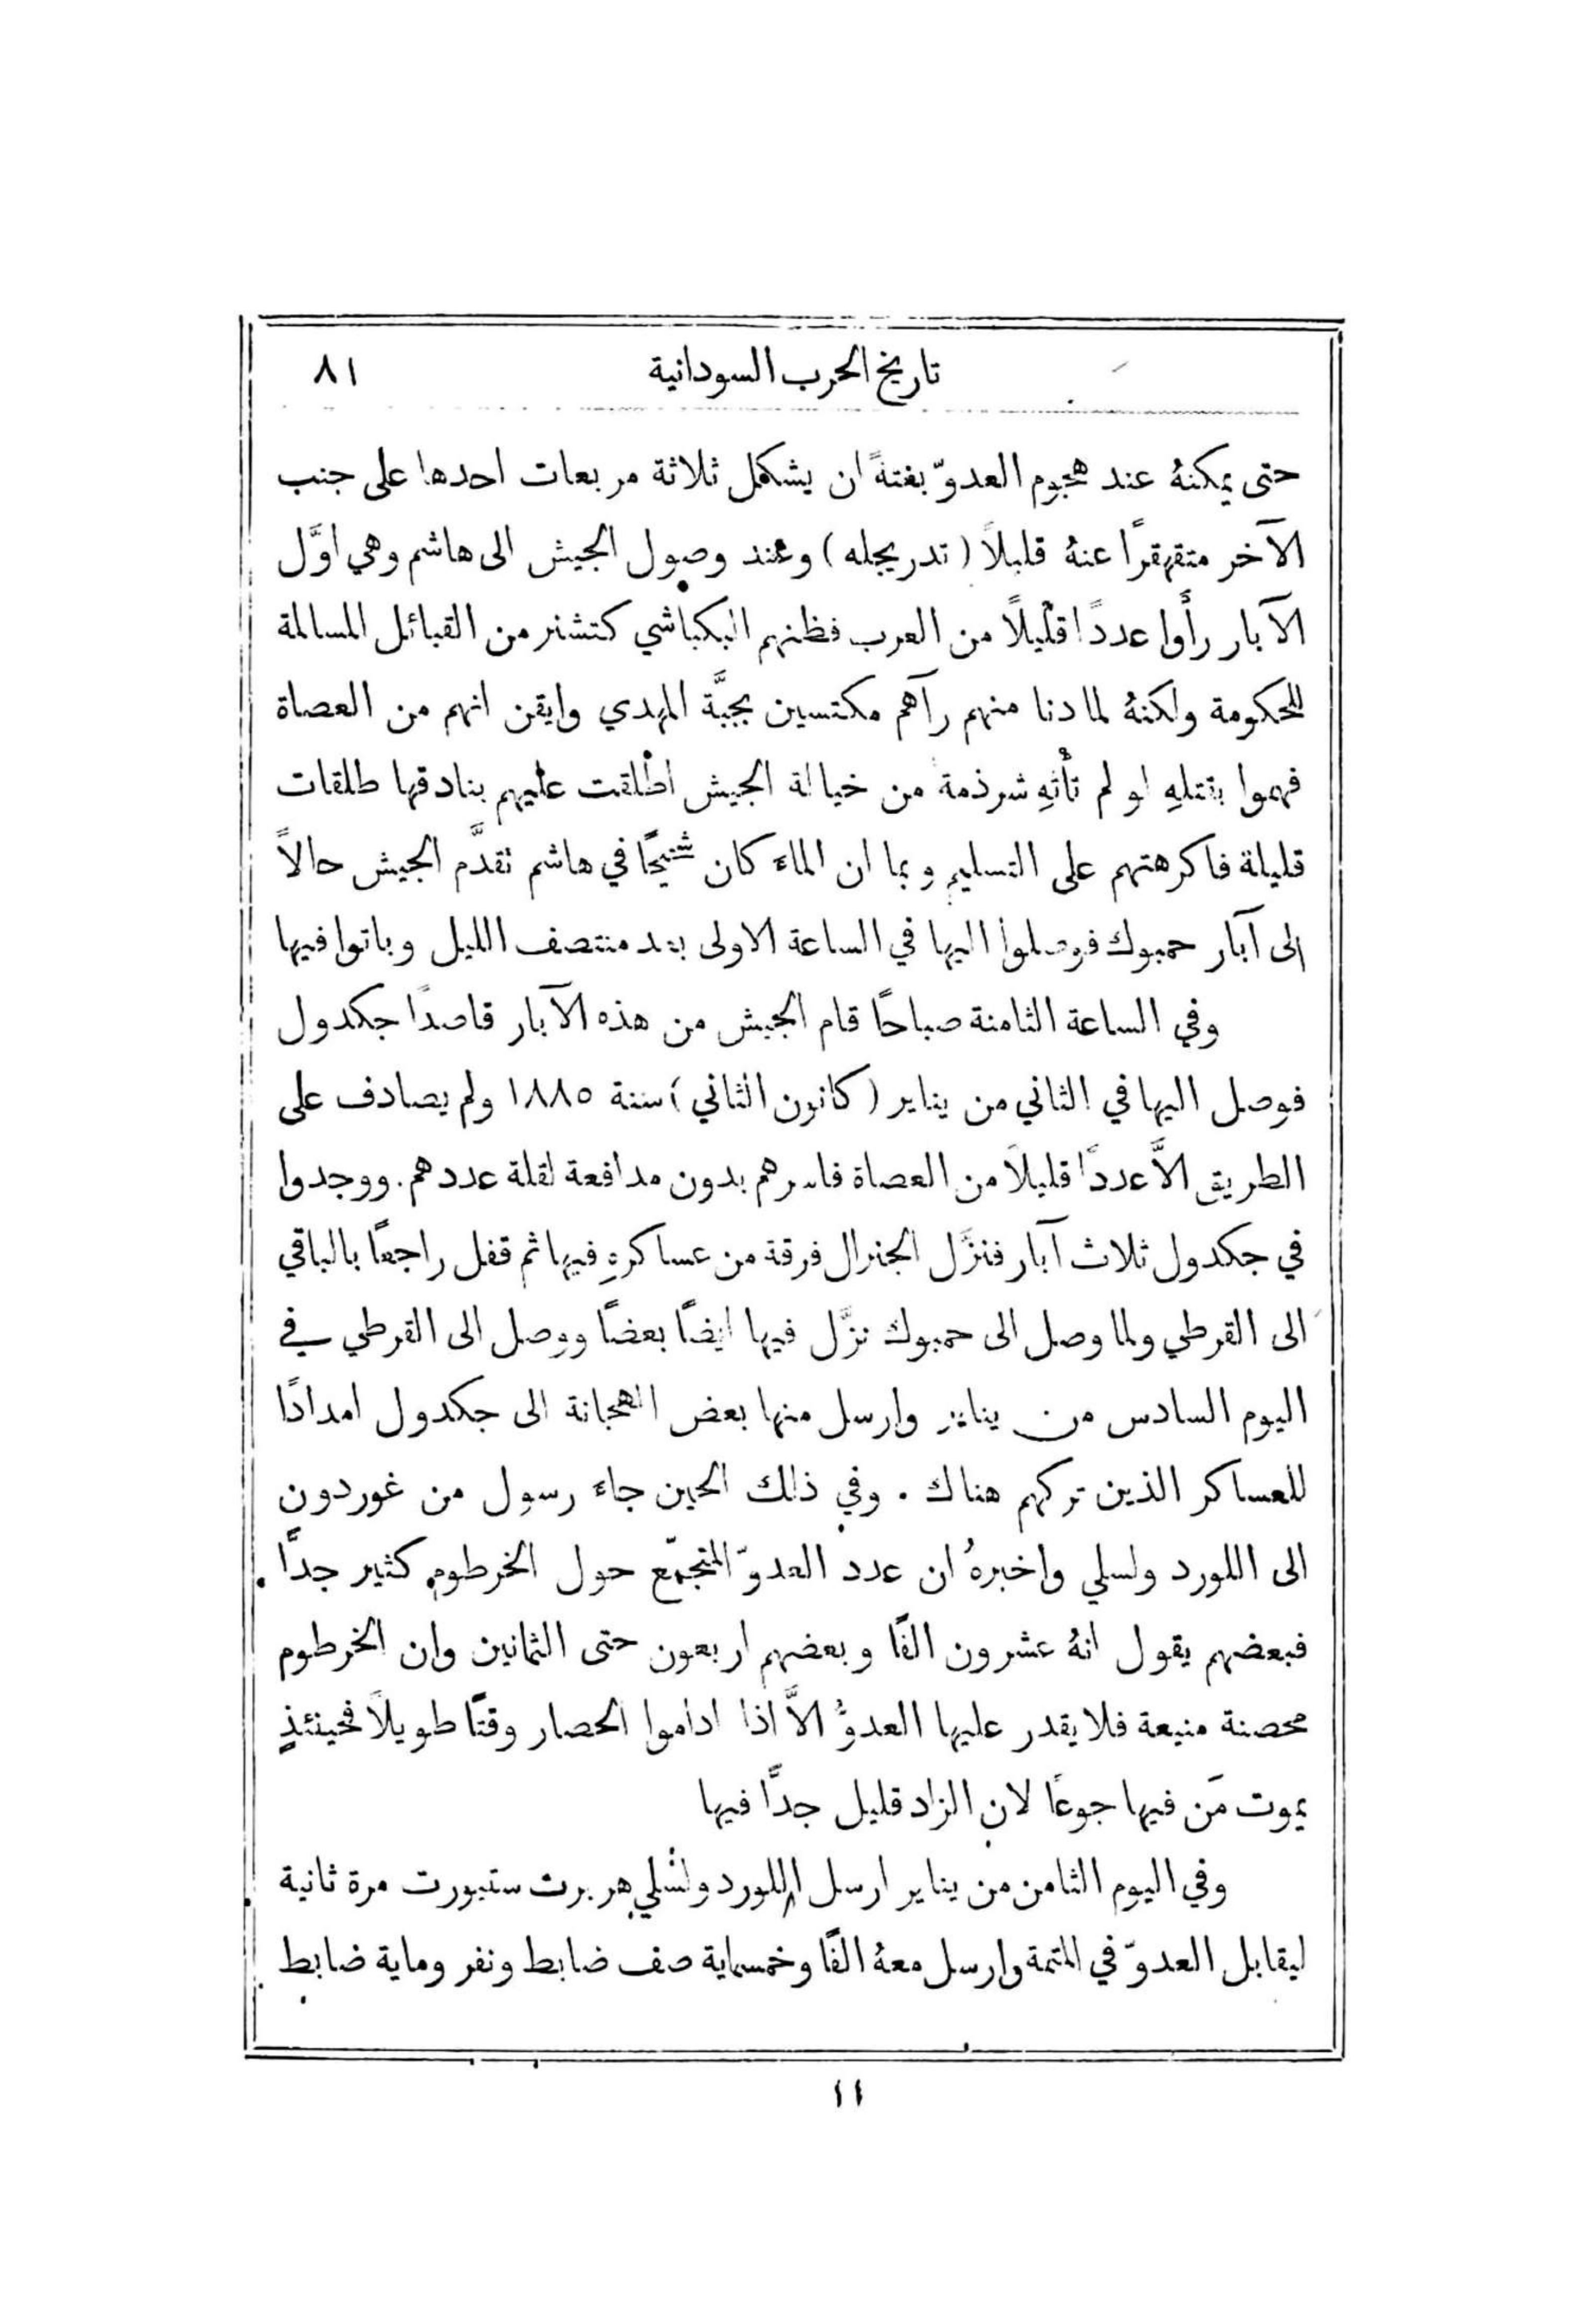 تاريخ الحرب السودانية ٨١
حتى يمكنهُ عند هجوم العدوّ بغتةً ان يشكل ثلاثة مربعات احدها على جنب
الآخر متقهقرًا عنهُ قليلاً (تدريجله) وعند وصول الجيش الى هاشم وهي اوَّل
الآبار رأَوا عددًا قليلًا من العرب فظنهم البكباشي كتشنر من القبائل المسالمة
للحكومة ولكنهُ لما دنا منهم رآهم مكتسين بجبَّة المهدي وايقن انهم من العصاة
فهموا بقتلهِ لو لم تأتهِ شرذمة من خيالة الجيش اطلقت عليهم بنادقها طلقات
قليلة فاكرهتهم على التسليم وبما ان الماء كان شحيحًا في هاشم تقدَّم الجيش حالاً
الى آبار حمبوك فوصلوا اليها في الساعة الاولى بعد منتصف الليل وباتوا فيها
وفي الساعة الثامنة صباحًا قام الجيش من هذه الآبار قاصدًا جكدول
فوصل اليها في الثاني من يناير (كانون الثاني) سنة ١٨٨٥ ولم يصادف على
الطريق الاَّ عددًا قليلاً من العصاة فاسرهم بدون مدافعة لقلة عددهم. ووجدوا
في جكدول ثلاث آبار فنزَّل الجنرال فرقة من عساكرهِ فيها ثم قفل راجعًا بالباقي
الى القرطي ولما وصل الى حمبوك نزَّل فيها ايضًا بعضًا ووصل الى القرطي في
اليوم السادس من يناير وارسل منها بعض الهجانة الى جكدول امدادًا
للعساكر الذين تركهم هناك . وفي ذلك الحين جاء رسول من غوردون
الى اللورد ولسلي واخبرهُ ان عدد العدوّ المتجمّع حول الخرطوم كثير جدًّا .
فبعضهم يقول انهُ عشرون الفًا وبعضهم اربعون حتى الثمانين وان الخرطوم
محصنة منيعة فلا يقدر عليها العدوُّ الاَّ اذا اداموا الحصار وقتًا طويلاً فحينئذٍ
يموت مَن فيها جوعًا لان الزاد قليل جدًّا فيها
وفي اليوم الثامن من يناير ارسل اللورد ولسلي هربرت ستيورت مرة ثانية
ليقابل العدوّ في المتمة وارسل معهُ الفًا وخمسماية صف ضابط ونفر وماية ضابط
١١